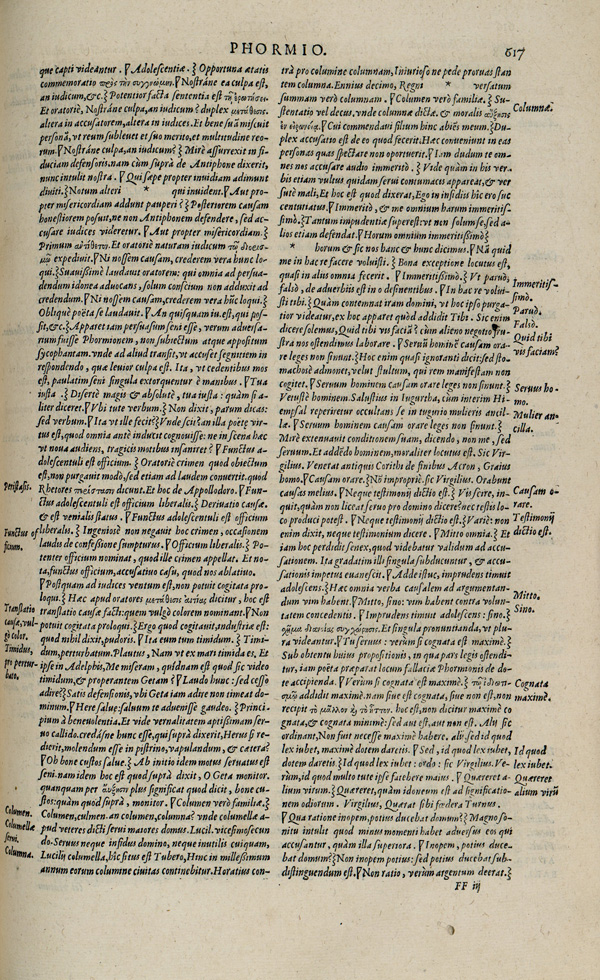 PHORMIO.
617
que capti videantur. ꝟ Adolescentiæ. ⁊ Opportuna ætatis
commemoratio πρὸς τὴν συγγνώμην. ꝟ Nostrane ea culpa est,
an iudicum, &c. ⁊ Potentior facta sententia est
Et oratoriè, Nostrane culpa, an iudicum? duplex μετάθεσις.
altera in accusatorem, altera in iudices. Et bene suã miscuit
personã, vt reum subleuet et suo merito, et multitudine reo-
rum. ꝟ Nostrane culpa, an iudicum? ⁊ Mirè assurrexit in fi-
duciam defensoris. nam cùm suprà de Antiphone dixerit,
nunc intulit nostra. ꝟ Qui sæpe propter inuidiam adimunt
diuiti. ⁊ Notum alteri * qui inuident. ꝟ Aut pro-
pter misericordiam addunt pauperi? ⁊ Posteriorem causam
honestiorem posuit, ne non Antiphonem defendere, sed ac-
cusare iudices videretur. ꝟ Aut propter misericordiam. ⁊
Primum Et oratoriè naturam iudicum
expediuit. ꝟ Ni nossem causam, crederem vera hunc lo-
qui. ⁊ Suauissimè laudauit oratorem: qui omnia ad persua-
dendum idonea aduocans, solum conscium non adduxit ad
credendum. ꝟ Ni nossem causam, crederem vera hũc loqui. ⁊
Obliquè poëta se laudauit. ꝟ An quisquam iu. est, qui pos-
sit, &c. ⁊ Apparet iam persuasum seni esse, verum aduersa-
rium fuisse Phormionem, non subiectum atque appositum
sycophantam. vnde ad aliud transit, vt accuset segnitiem in
respondendo, quæ leuior culpa est. Ita, vt cedentibus mos
est, paulatim seni singula extorquentur è manibus. ꝟ Tua
iusta. ⁊ Disertè magis & absolutè, tua iusta: quàm si a-
liter diceret. ꝟ Vbi tute verbum. ⁊ Non dixit, parum dicas:
sed verbum. ꝟ Ita vt ille fecit? ⁊ Vnde scit? an illa poëtę vir-
tus est, quod omnia antè induxit cognouisse: ne in scena hæc
vt noua audiens, tragicis motibus insaniret? ꝟ Functus a-
dolescentuli est officium. ⁊ Oratoriè crimen quod obiectum
est, non purgauit modò, sed etiam ad laudem conuertit. quod
Rhetores περίστασιν dicunt. Et hoc de Appollodoro. ꝟ Fun-
ctus adolescentuli est officium liberalis. ⁊ Deriuatio causæ.
& est venialis status. ꝟ Functus adolescentuli est officium
liberalis. ⁊ Ingeniosè non negauit hoc crimen, occasionem
laudis de confessione sumpturus. ꝟ Officium liberalis. ⁊ Po-
tenter officium nominat, quod ille crimen appellat. Et no-
ta, functus officium, accusatiuo casu, quod nos ablatiuo.
ꝟ Postquam ad iudices ventum est, non potuit cogitata pro-
loqui. ⁊ Hæc apud oratores μετάθεσις αἰτίας dicitur, hoc est
translatio causæ facti: quem vulgò colorem nominant. ꝟ Non
potuit cogitata proloqui. ⁊ Ergo quod cogitauit, industria est:
quod nihil dixit, pudoris. ꝟ Ita eum tum timidum. ⁊ Timi-
dum, perturbatum. Plautus, Nam vt ex mari timida es. Et
ipse in Adelphis, Me miseram, quidnam est quod sic video
timidum, & properantem Getam? ꝟ Laudo hunc: sed cesso
adire? ⁊ Satis defensionis, vbi Geta iam adire non timeat do-
minum. ꝟ Here salue: saluum te aduenisse gaudeo. ⁊ Princi-
pium à beneuolentia. Et vide vernalitatem aptissimam ser-
uo callido. credásne hunc esse, qui suprà dixerit, Herus si re-
dierit, molendum esse in pistrino, vapulandum, & cætera?
ꝟ Ob bone custos salue. ⁊ Ab initio idem motus seruatus est
seni. nam idem hoc est quod suprà dixit, O Geta monitor.
quanquam per plus significat quod dicit, bone cu-
stos: quàm quod suprà, monitor. ꝟ Columen verò familiæ. ⁊
Columen, culmen. an columen, columna? vnde columellæ a-
pud veteres dicti serui maiores domus. Lucil. vicesimosecun
do. Seruus neque infidus domino, neque inutilis cuiquam,
Lucilij columella, hîc situs est Tubero, Hinc in millesimum
annum eorum columine ciuitas continebitur. Horatius con-
Peristasis.
Functus of
ficium.
Translatio
causæ, vul-
gò color.
Timidus,
pro pertur-
bato.
Columen.
Columellæ
serui.
Columna.
trà pro columine columnam, Iniurioso ne pede proruas stan
tem columnam. Ennius decimo, Regni * versatum
summam verò columnam. ꝟ Columen verò familiæ. ⁊ Su-
stentatio vel decus. vnde columna dicta. & moralis αὔξησις
ἐν εἰρωνείᾳ. ꝟ Cui commendaui filium hinc abiens meum. ⁊ Du-
plex accusatio est de eo quod fecerit. Hæc conueniunt in eas
personas quas spectare non oportuerit. ꝟ Iam dudum te om-
nes nos accusare audio immeritò. ⁊ Vide quàm in his ver-
bis etiam vultus quidam serui contumacis appareat, & ver
sutè mali, Et hoc est quod dixerat, Ego in insidiis hîc ero suc
centuriatus. ꝟ Immeritò, & me omnium harum immeritis-
simò. ⁊ Tantum impudentiæ superest: vt non solum se, sed a-
lios etiam defendat. ꝟ Horum omnium immeritissimò ⁊
* horum & sic nos hanc & hunc dicimus. ꝟ Nã quid
me in hac re facere voluisti. ⁊ Bona exceptione locutus est,
quasi in aliis omnia fecerit. ꝟ Immeritissimò. ⁊ Vt parùm,
falsò, de aduerbiis est in o desinentibus. ꝟ In hac re volui-
sti tibi. ⁊ Quàm contemnat iram domini, vt hoc ipso purga-
tior videatur, ex hoc apparet quod addidit Tibi. Sic enim
dicere solemus, Quid tibi vis faciã? cùm alieno negotio fru-
stra nos ostendimus laborare. ꝟ Seruũ hominẽ causam ora-
re leges non sinunt. ⁊ Hoc enim quasi ignoranti dicit: sed sto-
machosè admonet, velut stultum, qui rem manifestam non
cogitet. ꝟ Seruum hominem causam orare leges non sinunt. ⁊
Vetustè hominem. Salustius in Iugurtha, cùm interim Hi-
empsal reperiretur occultans se in tugurio mulieris ancil-
læ. ꝟ Seruum hominem causam orare leges non sinunt. ⁊
Mirè extenuauit conditionem suam, dicendo, non me, sed
seruum. Et addẽdo hominem, moraliter locutus est. Sic Vir-
gilius. Venerat antiquis Corithi de finibus Acron, Graius
homo. ꝟ Causam orare. ⁊ Nõ impropriè. sic Virgilius. Orabunt
causas melius. ꝟ Neque testimonij dictio est. ⁊ Vis scire, in-
quit, quàm non liceat seruo pro domino dicere? nec testis lo-
co produci potest. ꝟ Neque testimonij dictio est. ⁊ Varie: non
enim dixit, neque testimonium dicere. ꝟ Mitto omnia. ⁊ Et
iam hoc perdidit senex, quod videbatur validum ad accu-
sationem. Ita gradatim illi singula subducuntur, & accu-
sationis impetus euanescit. ꝟ Adde istuc, imprudens timuit
adolescens. ⁊ Hæc omnia verba causalem ad argumentan-
dum vim habent. ꝟ Mitto, sino: vim habent contra volun-
tatem concedentis. ꝟ Imprudens timuit adolescens: sino. ⁊
Et singula pronuntianda, vt plu-
ra videantur. ꝟ Tu seruus: verùm si cognata est maximè. ⁊
Sub obtentu huius propositionis, in qua pars legis ostendi-
tur, iam poëta præparat locum fallaciæ Phormionis de do-
te accipienda. ꝟ Verùm si cognata est maximè. ⁊
addidit maximè. nam siue est cognata, siue non est, non
recipit τὸ μᾶλλον ἢ τὸ ἧττον. hoc est, non dicitur maximè co
gnata, & cognata minimè: sed aut est, aut non est. Alij sic
ordinant, Non fuit necesse maximè habere. alij: sed id quod
lex iubet, maximè dotem daretis. ꝟ Sed, id quod lex iubet,
dotem daretis. ⁊ Id quod lex iubet: ordo: sic Virgilius. Ve-
rùm, id quod multo tute ipse fatebere maius. ꝟ Quæreret a-
lium virum. ⁊ Quæreret, quàm idoneum est ad significatio-
nem odiorum. Virgilius, Quærat sibi fœdera Turnus.
ꝟ Qua ratione inopem, potius ducebat domum? ⁊ Magno so-
nitu intulit quod minus momenti habet aduersus eos qui
accusantur, quàm illa superiora. ꝟ Inopem, potius duce-
bat domum? ⁊ Non inopem potius: sed potius ducebat sub-
distinguendum est. ꝟ Non ratio, verùm argentum deerat. ⁊
Columna.
Immeritis-
simò.
Parùm.
Falsò.
Quid tibi
vis faciam?
Seruus ho-
mo.
Mulier an-
cilla.
Causam o-
rare.
Testimonij
dictio est.
Mitto.
Sino.
Cognata
maximè.
Id quod
lex iubet.
Quæreret
alium virũ
FF iij